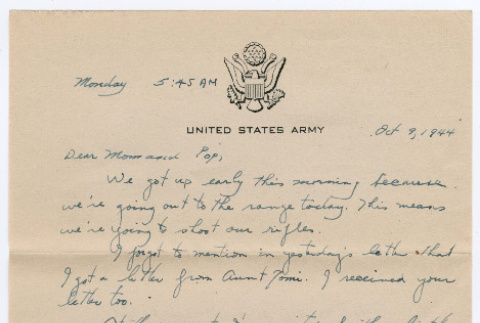 Monday 5:45 AM
UNITED STATES ARMY
Oct 9, 1944
Dear Mom and Pop,
We got up early this morning because
we're going out to the range today. This means
we're going to shoot our rifles.
I forgot to mention in yesterday's letter that
I got a letter from Aunt Tomi. I received your
letter too.